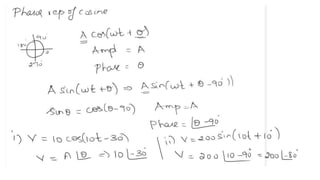 Phase rep of cosine
90
180
0
270
A cos(wt + θ)
Ampl = A
Phase = θ
A sin(wt + θ) ⇒ A sin(wt + θ - 90°))
sinθ = cos(θ-90) Amp = A
Phase = ∠θ-90
i) V = 10 cos(10t - 30) ii) V = 200 sin(10t + 10°)
V = A∠θ ⇒ 10∠-30 V = 200∠10-90 = 200∠-80